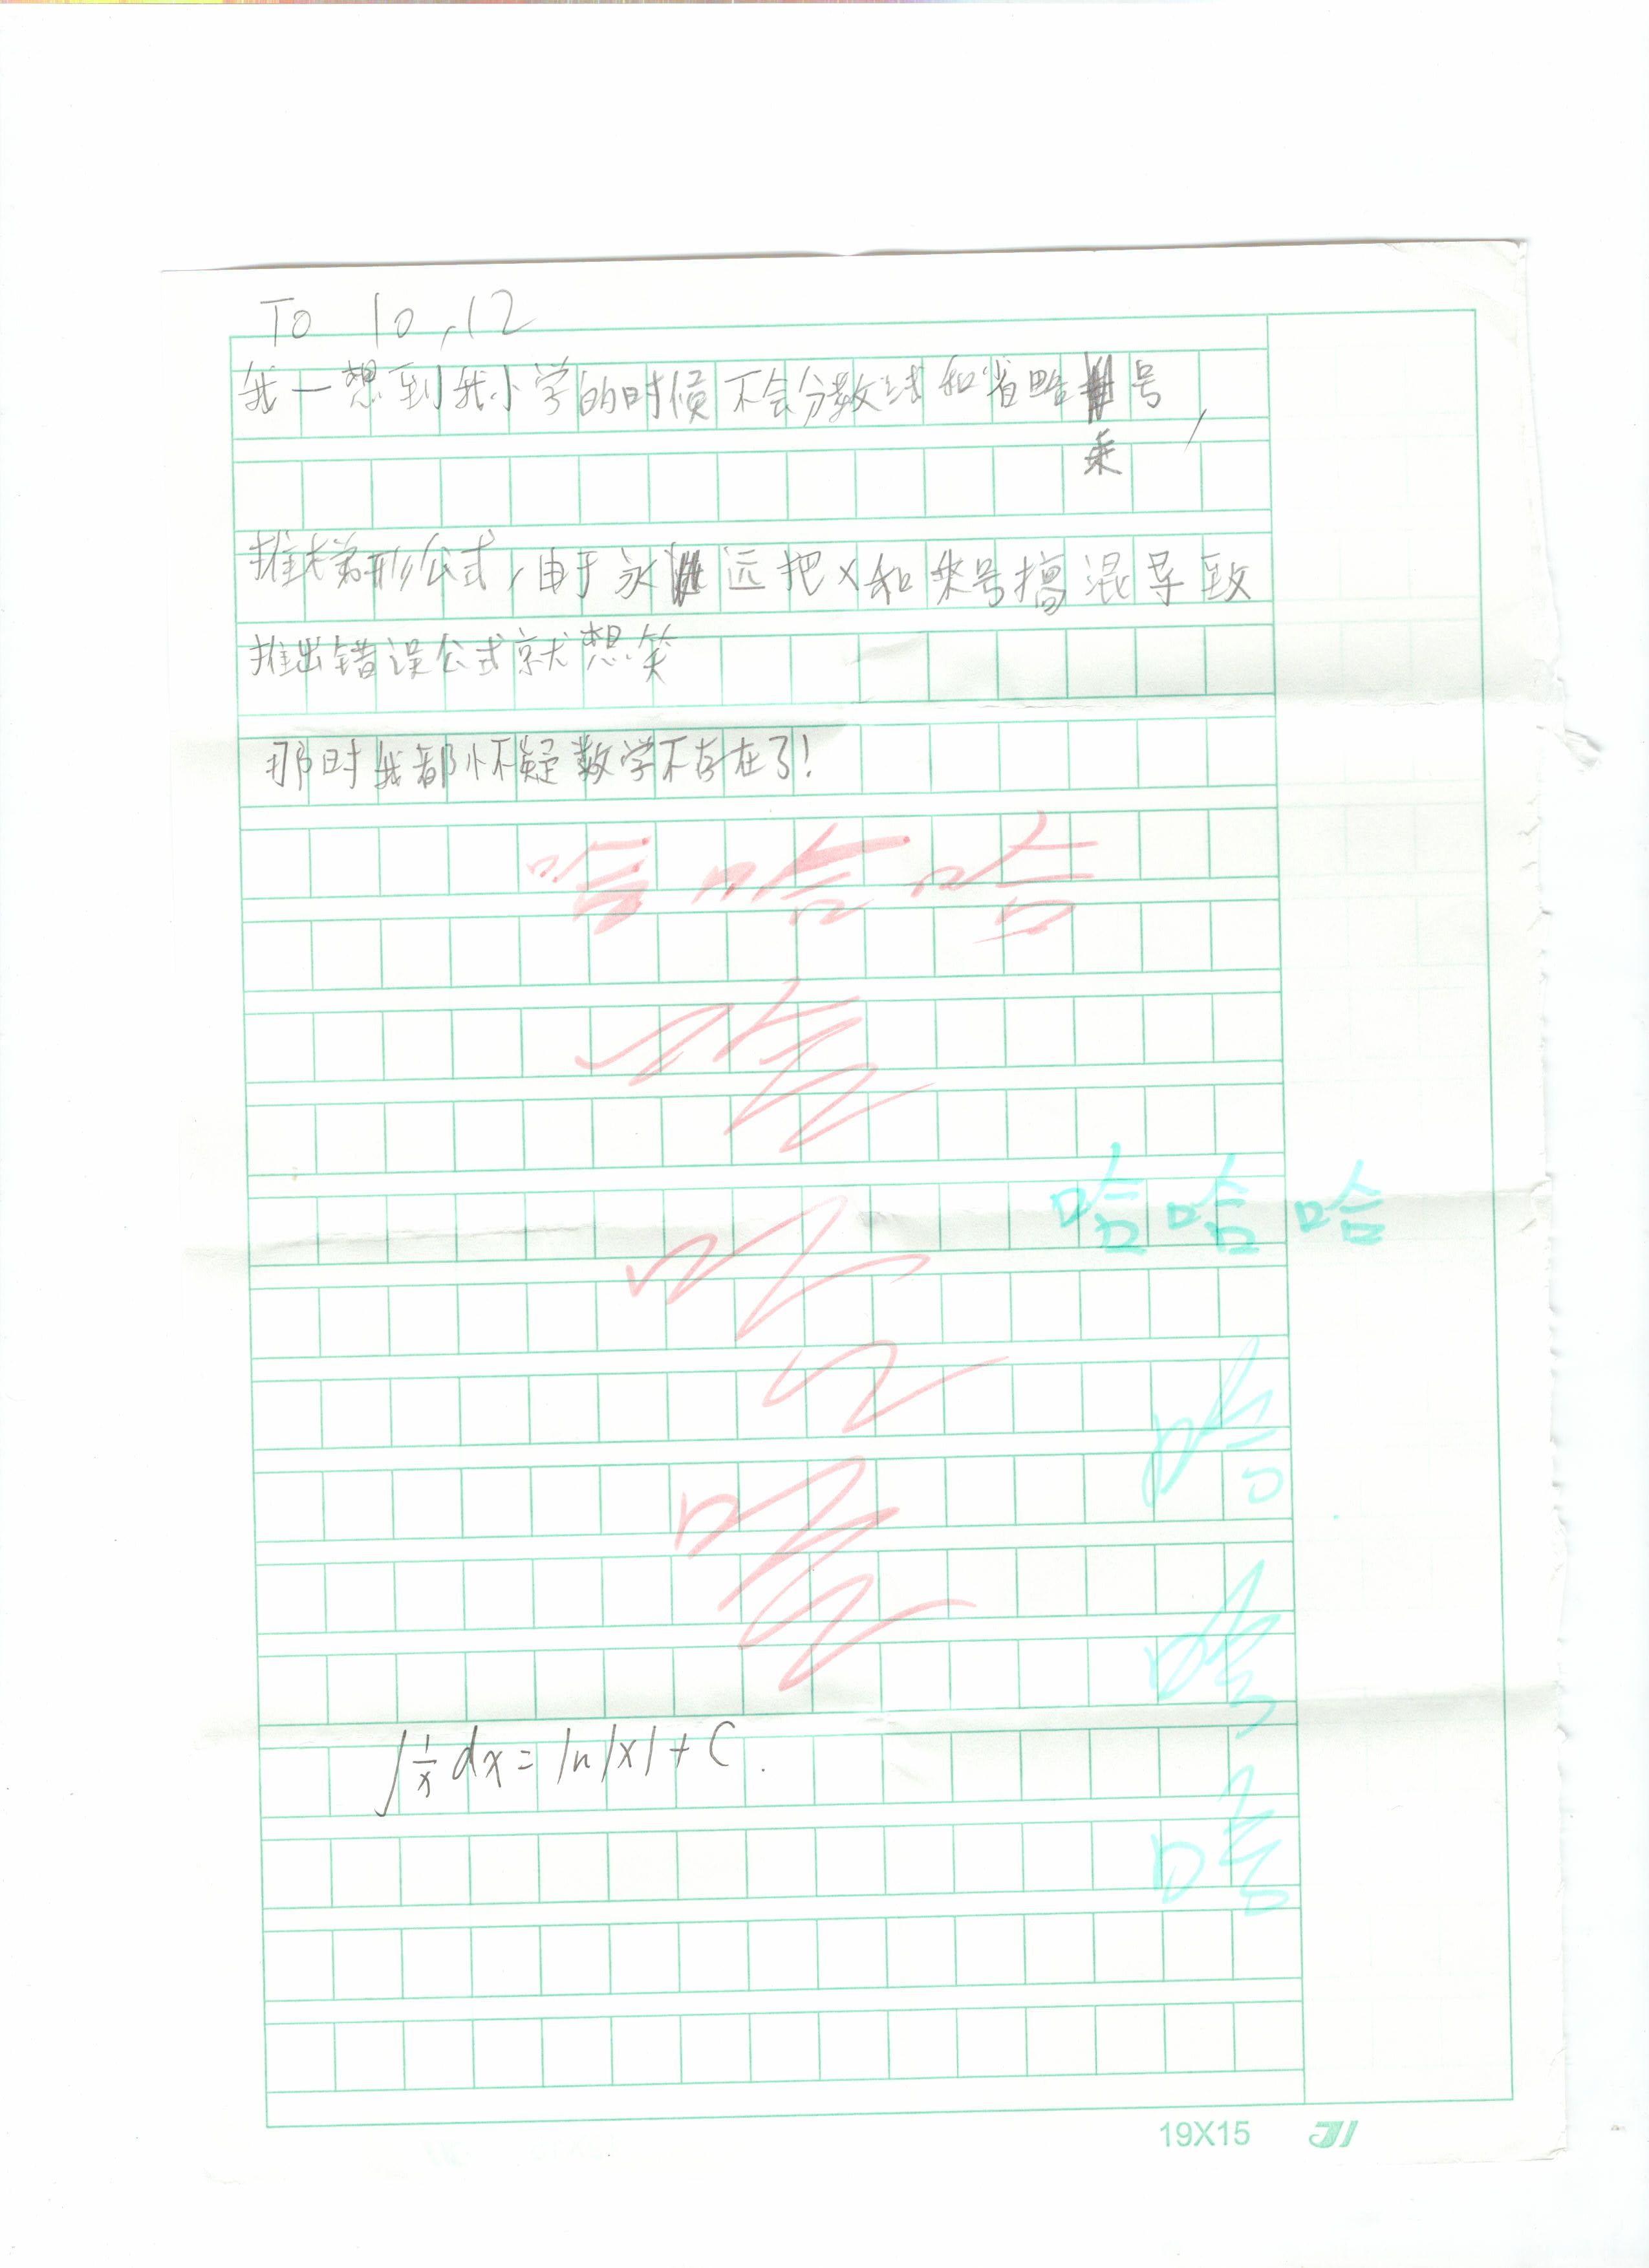 To 10.12
我一想到我小学的时候不会分数线和省略乘号,
推梯形公式,由于永远把x和乘号搞混导致
推出错误公式就想笑
那时我都怀疑数学不存在了!
哈哈哈
哈
哈哈哈
哈
哈
哈
哈
哈
∫1/x dx=ln|x|+C.
19X15